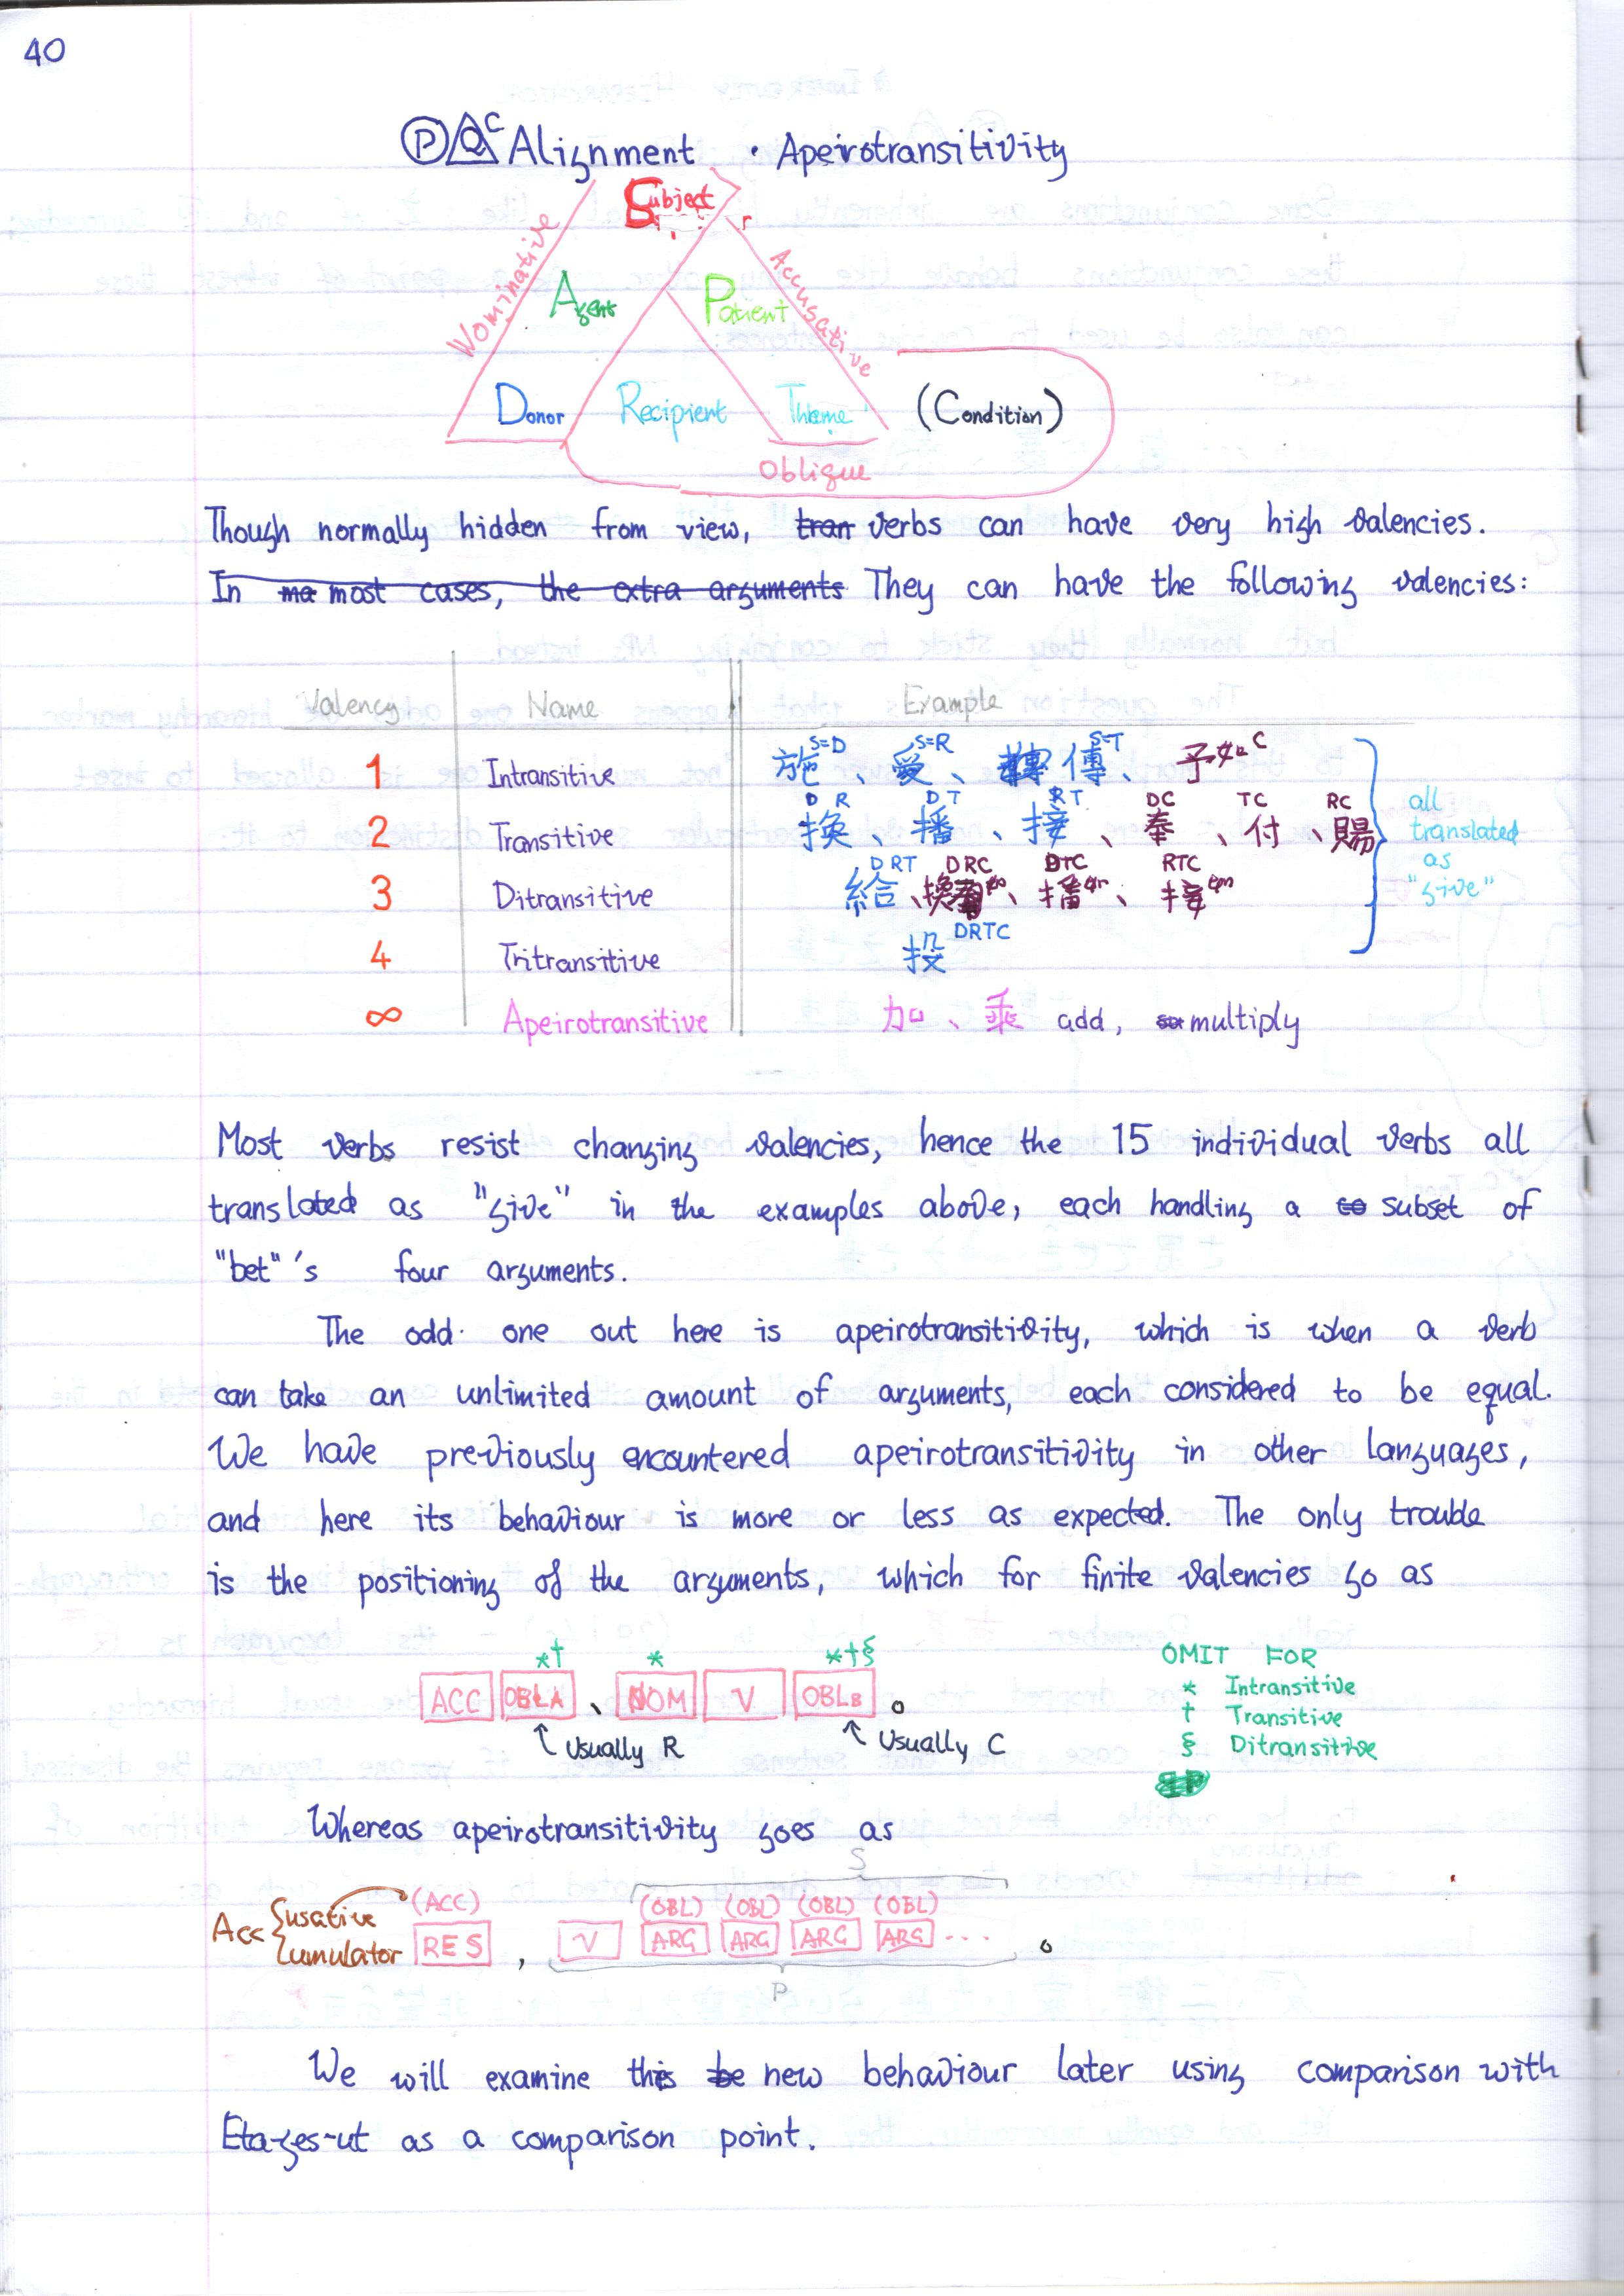 40
PQC Alignment · Apeirotransitivity
Subject
Nominative Agent Patient Accusative
Donor Recipient Theme (Condition)
Oblique
Though normally hidden from view, tran verbs can have very high valencies.
In ma most cases, the extra arguments They can have the following valencies:
Valency Name Example
S=D S=R S=T C
1 Intransitive 施、愛、轉 傳、予
D R D T RT DC TC RC
2 Transitive 換、播、接、奉、付、賜
DRT DRC DTC RTC
3 Ditransitive 給、換、播、接
all translated as "give"
DRTC
4 Tritransitive 投
∞ Apeirotransitive 加、乘 add, multiply
Most verbs resist changing valencies, hence the 15 individual verbs all
translated as "give" in the examples above, each handling a to subset of
"bet"'s four arguments.
The odd one out here is apeirotransitivity, which is when a verb
can take an unlimited amount of arguments, each considered to be equal.
We have previously encountered apeirotransitivity in other languages,
and here its behaviour is more or less as expected. The only trouble
is the positioning of the arguments, which for finite valencies go as
*† * *†§
ACC OBLA、NOM V OBLB。
Usually R Usually C
OMIT FOR
* Intransitive
† Transitive
§ Ditransitive
Whereas apeirotransitivity goes as
S
(ACC) (OBL) (OBL) (OBL) (OBL)
Acc usative
cumulator RES , V ARG ARG ARG ARG ... 。
P
We will examine this be new behaviour later using comparison with
Eta-ges-ut as a comparison point.